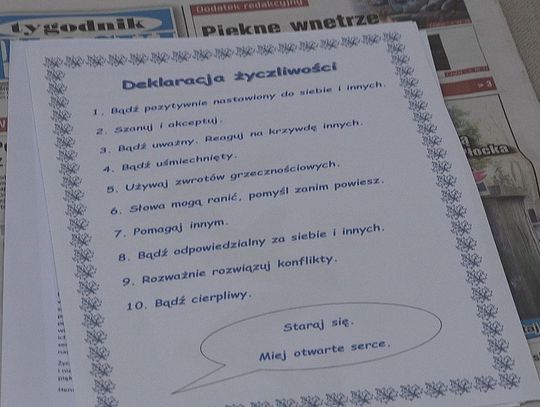 tygodnik
Dodatek redakcyjny
Piękne wnętrze
Deklaracja życzliwości
1. Bądź pozytywnie nastawiony do siebie i innych.
2. Szanuj i akceptuj.
3. Bądź uważny. Reaguj na krzywdę innych.
4. Bądź uśmiechnięty.
5. Używaj zwrotów grzecznościowych.
6. Słowa mogą ranić, pomyśl zanim powiesz.
7. Pomagaj innym.
8. Bądź odpowiedzialny za siebie i innych.
9. Rozważnie rozwiązuj konflikty.
10. Bądź cierpliwy.
Staraj się.
Miej otwarte serce.